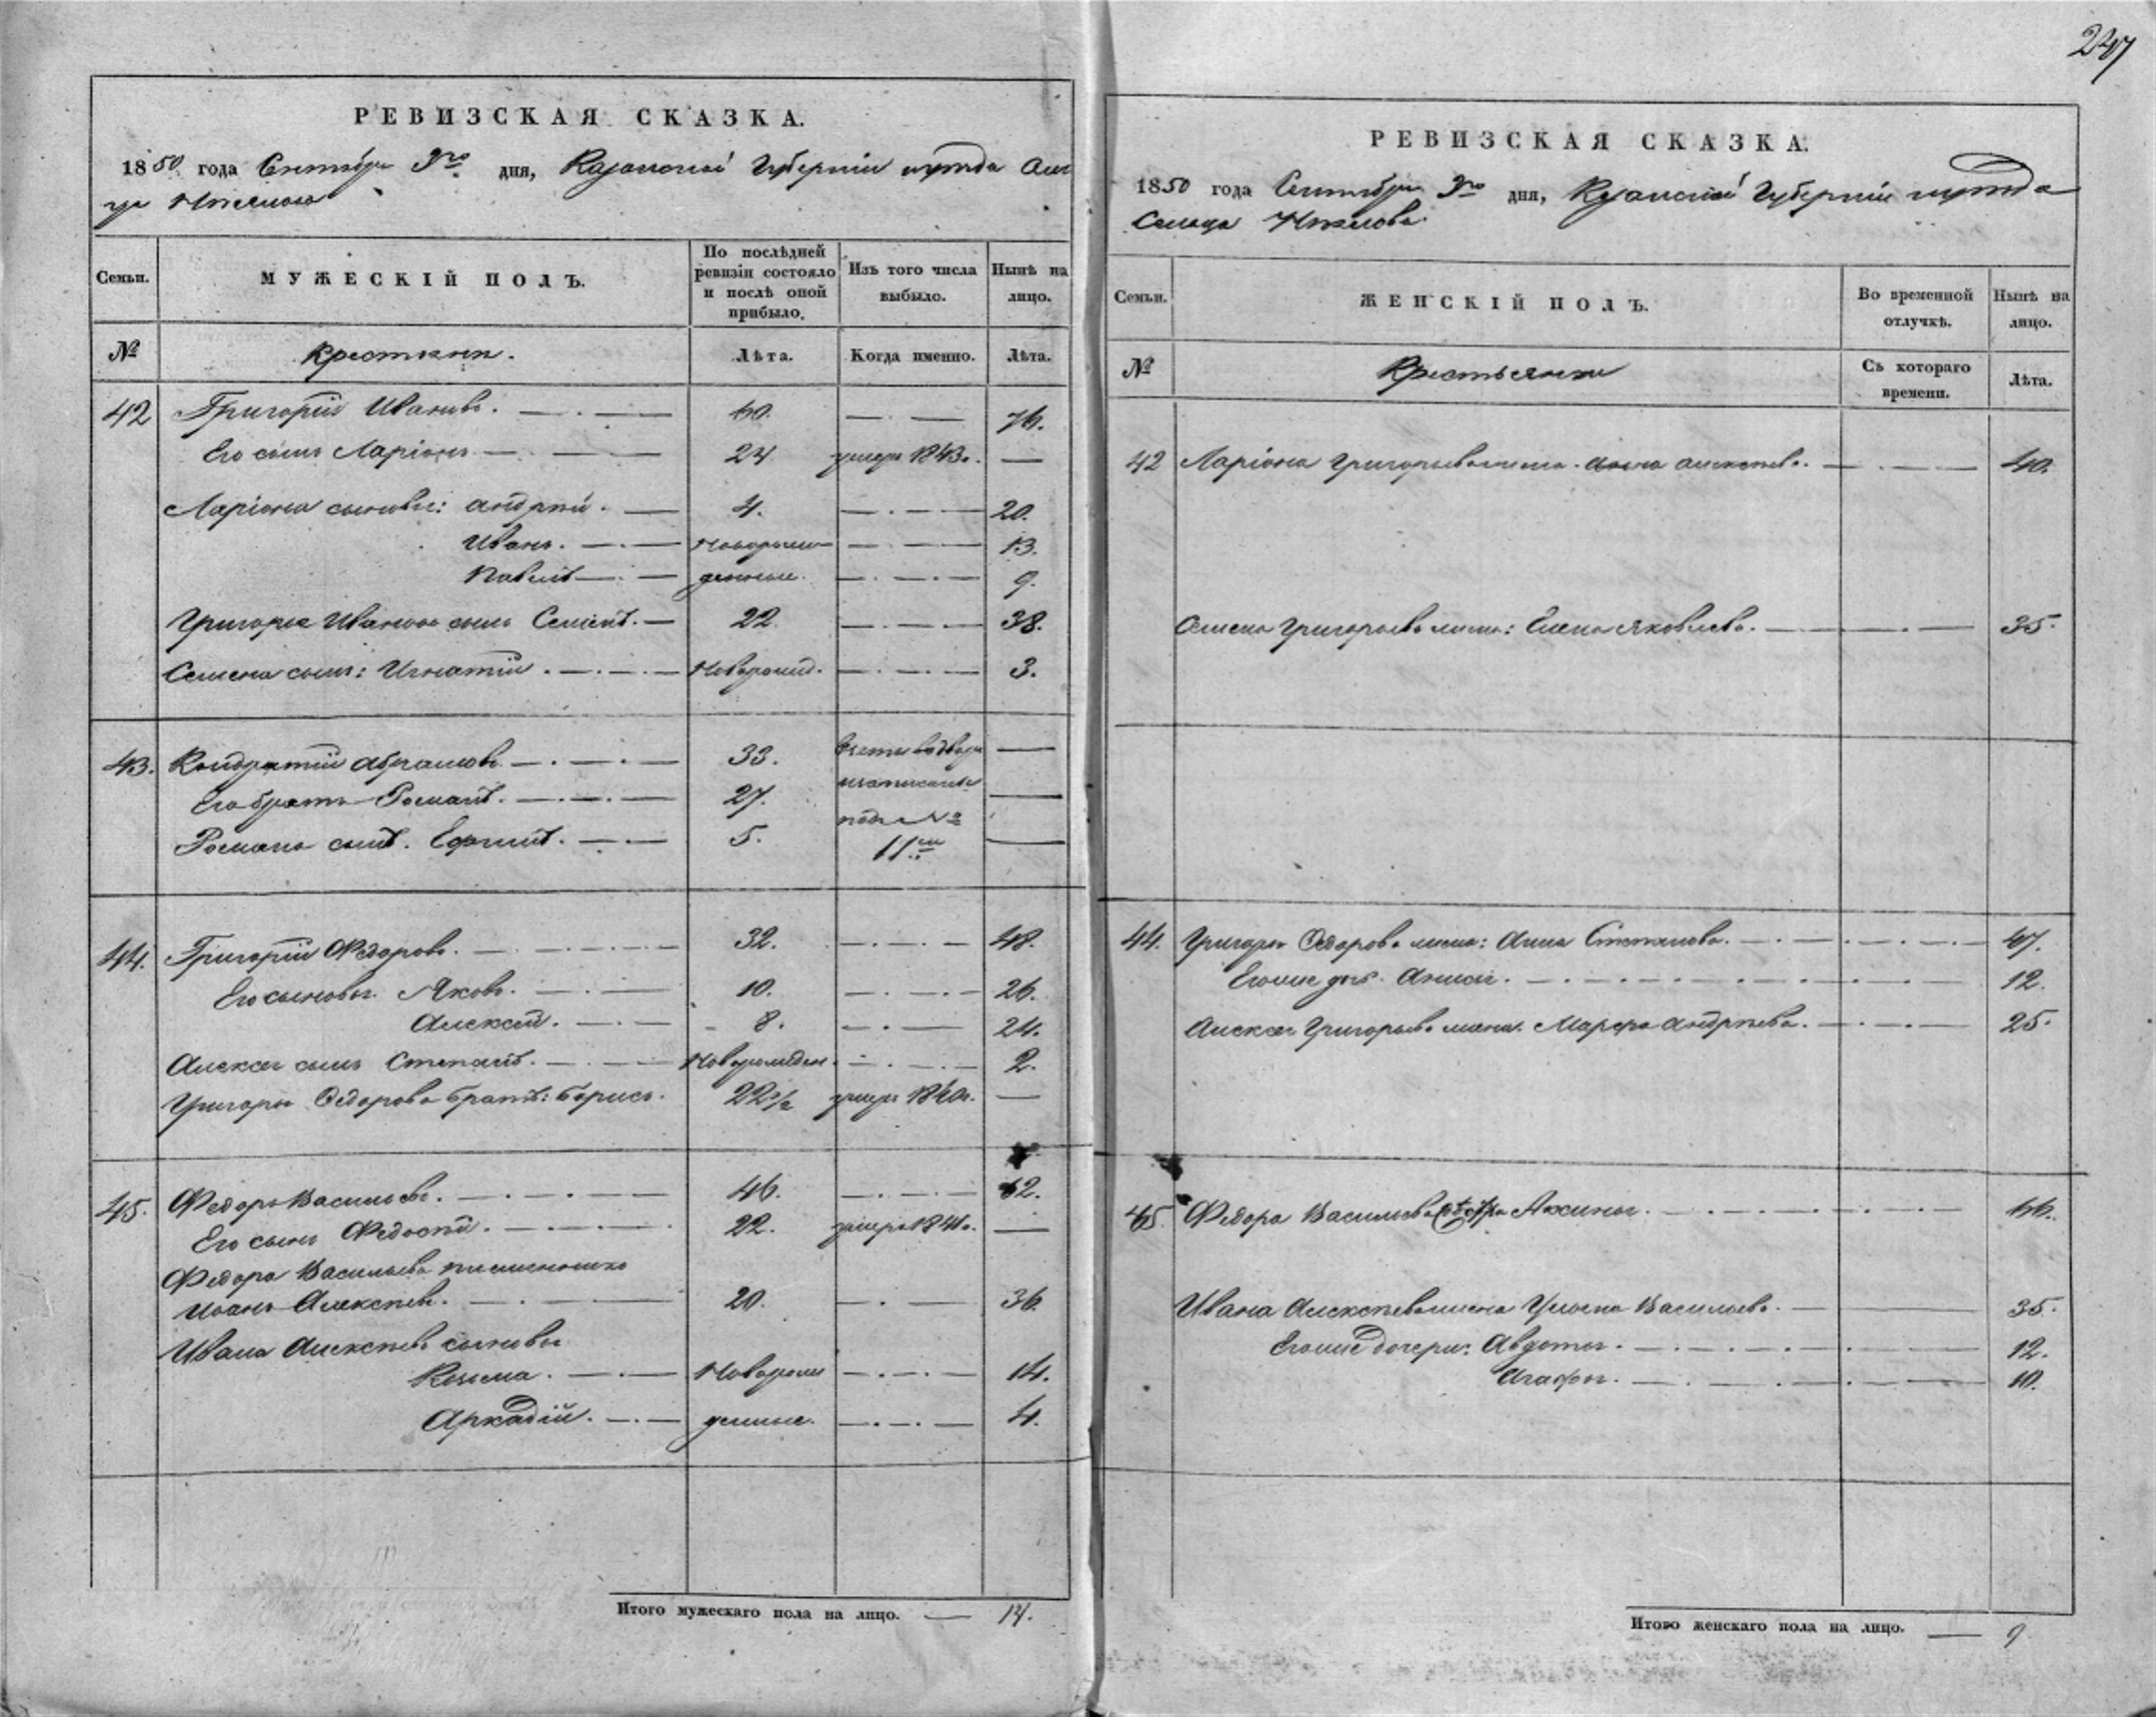 247
РЕВИЗСКАЯ СКАЗКА.
1850 года Сентября дня, Казанской Губерніи уѣзда Сель
ца
Семьи.
МУЖЕСКІЙ ПОЛЪ.
По послѣдней ревизіи состояло и послѣ оной прибыло.
Изъ того числа выбыло.
Нынѣ на лицо.
№
Крестьяне.
Лѣта.
Когда именно.
Лѣта.
42 Григорій Ивановъ. 60. 76.
Его сынъ Ларіонъ 24 умеръ 1843. —
Ларіона сыновья: Андрей. 4. 20.
Иванъ. новорож 13.
Павелъ денные. 9.
Григорья Иванова сынъ Семенъ. 22 38.
Семена сынъ: Игнатій. Новорожд. 3.
43. Кондратій Абрамовъ 33. —
Его братъ Романъ. 27. написаны —
Романа сынъ. Ефимъ. 5. подъ № 11ъ —
44. Григорій Ѳедоровъ. 32. 48.
Его сыновья Яковъ. 10. 26.
Алексей. 8. 24.
Алексея сынъ Степанъ. Новорожден. 2.
Григорья Ѳедорова братъ: Борисъ. 22½ умеръ 1840. —
45. Ѳедоръ Васильевъ. 46. 62.
Его сынъ Ѳедосѣй. 22. умеръ 1841. —
Ѳедора Васильева племянникъ
Иванъ Алексѣевъ. 20. 36.
Ивана Алексѣева сыновья
Козьма. Новорож 14.
Аркадій. денные. 4.
Итого мужескаго пола на лицо. — 14.
РЕВИЗСКАЯ СКАЗКА.
1850 года Сентября дня, Казанской Губерніи уѣзда
Сельца
Семьи.
ЖЕНСКІЙ ПОЛЪ.
Во временной отлучкѣ.
Нынѣ на лицо.
№
Крестьянки
Съ котораго времени.
Лѣта.
42 Ларіона Григорьева жена Анна Алексѣева. 40.
Семена Григорьева жена: Елена Яковлева. 35.
44. Григорья Ѳедорова жена: Анна Степанова. 47.
Его же дочь Анисья. 12.
Алексея Григорьева жена. Марфа Андрѣева. 25.
45 Ѳедора Васильева сестра Аксинья. 66.
Ивана Алексѣева жена Ульяна Васильева. 35.
Его же дочери: Авдотья. 12.
Агафья. 10.
Итого женскаго пола на лицо. — 9